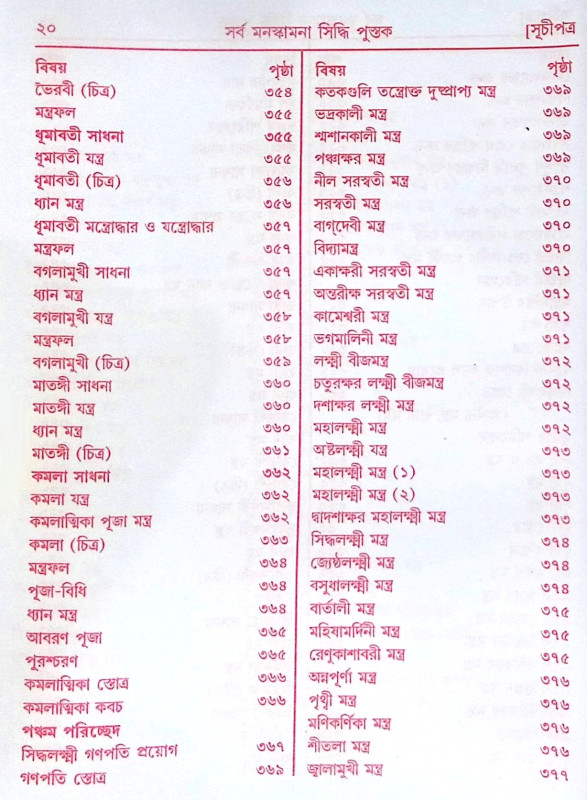 ২০ সর্ব মনস্কামনা সিদ্ধি পুস্তক [সূচীপত্র
বিষয় পৃষ্ঠা
ভৈরবী (চিত্র) ৩৫৪
মন্ত্রফল ৩৫৫
ধূমাবতী সাধনা ৩৫৫
ধূমাবতী যন্ত্র ৩৫৫
ধূমাবতী (চিত্র) ৩৫৬
ধ্যান মন্ত্র ৩৫৬
ধূমাবতী মন্ত্রোদ্ধার ও যন্ত্রোদ্ধার ৩৫৭
মন্ত্রফল ৩৫৭
বগলামুখী সাধনা ৩৫৭
ধ্যান মন্ত্র ৩৫৭
বগলামুখী যন্ত্র ৩৫৮
মন্ত্রফল ৩৫৮
বগলামুখী (চিত্র) ৩৫৯
মাতঙ্গী সাধনা ৩৬০
মাতঙ্গী যন্ত্র ৩৬০
ধ্যান মন্ত্র ৩৬০
মাতঙ্গী (চিত্র) ৩৬১
কমলা সাধনা ৩৬২
কমলা যন্ত্র ৩৬২
কমলাত্মিকা পূজা মন্ত্র ৩৬২
কমলা (চিত্র) ৩৬৩
মন্ত্রফল ৩৬৪
পূজা-বিধি ৩৬৪
ধ্যান মন্ত্র ৩৬৪
আবরণ পূজা ৩৬৫
পুরশ্চরণ ৩৬৫
কমলাত্মিকা স্তোত্র ৩৬৬
কমলাত্মিকা কবচ ৩৬৬
পঞ্চম পরিচ্ছেদ
সিদ্ধলক্ষ্মী গণপতি প্রয়োগ ৩৬৭
গণপতি স্তোত্র ৩৬৯
বিষয় পৃষ্ঠা
কতকগুলি তন্ত্রোক্ত দুষ্প্রাপ্য মন্ত্র ৩৬৯
ভদ্রকালী মন্ত্র ৩৬৯
শ্মশানকালী মন্ত্র ৩৬৯
পঞ্চাক্ষর মন্ত্র ৩৬৯
নীল সরস্বতী মন্ত্র ৩৭০
সরস্বতী মন্ত্র ৩৭০
বাগ্‌দেবী মন্ত্র ৩৭০
বিদ্যামন্ত্র ৩৭০
একাক্ষরী সরস্বতী মন্ত্র ৩৭১
অন্তরীক্ষ সরস্বতী মন্ত্র ৩৭১
কামেশ্বরী মন্ত্র ৩৭১
ভগমালিনী মন্ত্র ৩৭১
লক্ষ্মী বীজমন্ত্র ৩৭২
চতুরক্ষর লক্ষ্মী বীজমন্ত্র ৩৭২
দশাক্ষর লক্ষ্মী মন্ত্র ৩৭২
মহালক্ষ্মী মন্ত্র ৩৭২
অষ্টলক্ষ্মী যন্ত্র ৩৭৩
মহালক্ষ্মী মন্ত্র (১) ৩৭৩
মহালক্ষ্মী মন্ত্র (২) ৩৭৩
দ্বাদশাক্ষর মহালক্ষ্মী মন্ত্র ৩৭৩
সিদ্ধলক্ষ্মী মন্ত্র ৩৭৪
জ্যেষ্ঠলক্ষ্মী মন্ত্র ৩৭৪
বসুধালক্ষ্মী মন্ত্র ৩৭৪
বার্তালী মন্ত্র ৩৭৫
মহিষামর্দিনী মন্ত্র ৩৭৫
রেণুকাশাবরী মন্ত্র ৩৭৫
অন্নপূর্ণা মন্ত্র ৩৭৬
পৃথ্বী মন্ত্র ৩৭৬
মণিকর্ণিকা মন্ত্র ৩৭৬
শীতলা মন্ত্র ৩৭৬
জ্বালামুখী মন্ত্র ৩৭৭